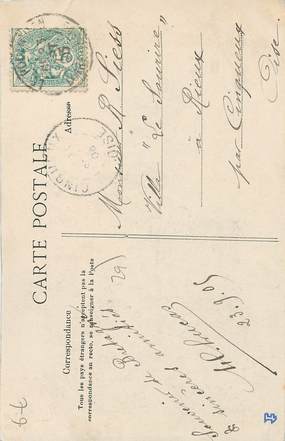 CARTE POSTALE
Correspondance
Tous les pays étrangers n'acceptent pas la
correspondance au recto, se renseigner à la Poste
Adresse
Monsieur R. Siess
Villa "Le Sourire"
à Rieux
par Cinqueux
Oise
Souvenir de
& sincères amitiés
23.9.05
CINQUEUX
OISE
6-E